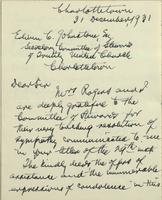 Charlottetown
31 December 1931
Edwin C. Johnstone Esq
Secretary Committee of Stewards
of Trinity United Church
Charlottetown
Dear Sir
Mrs Rogers and I
are deeply grateful to the
Committee of Stewards for
their very touching resolution of
sympathy communicated to me
in your letter of the 29th inst
The kindly deeds & offers of
assistance and the innumerable
expressions of condolence in this